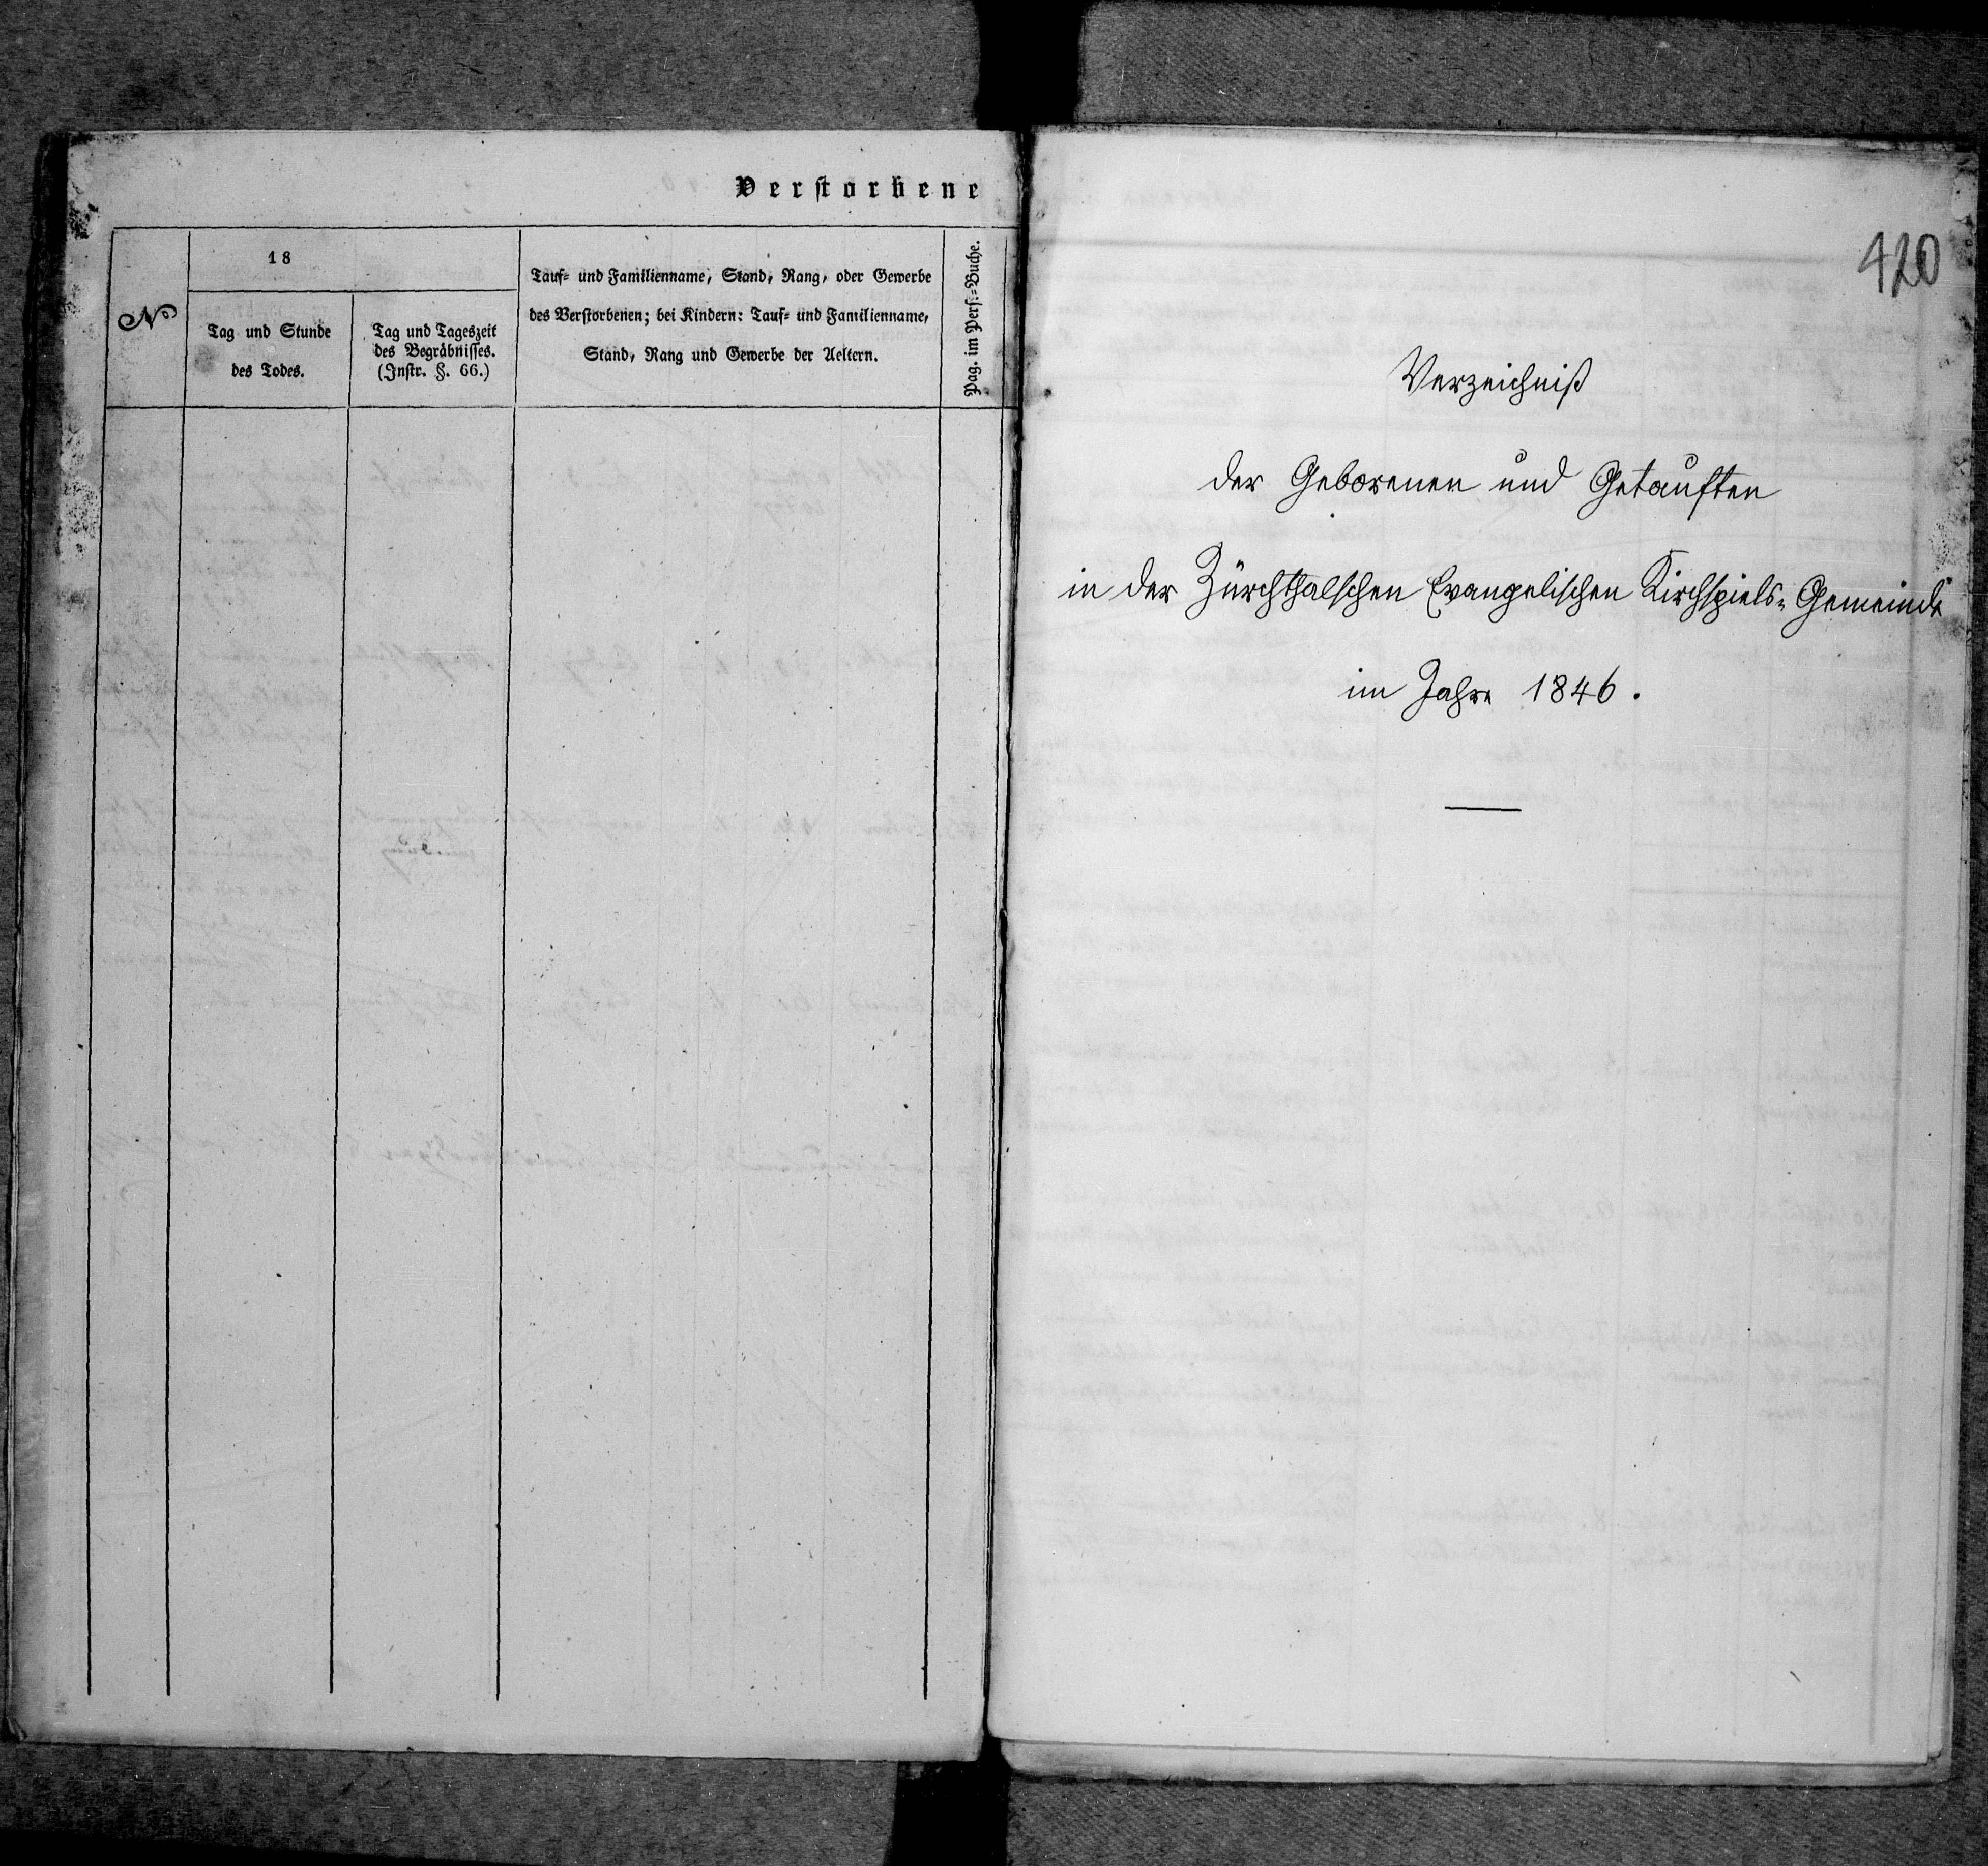 Verstorbene
№
18
Tag und Stunde
des Todes.
Tag und Tageszeit
des Begräbnisses.
(Instr. §. 66.)
Tauf- und Familienname, Stand, Rang, oder Gewerbe
des Verstorbenen; bei Kindern: Tauf- und Familienname,
Stand, Rang und Gewerbe der Aeltern.
Pag. im Pers.-Buche.
420
Verzeichniß
der Geborenen und Getauften
in der Zürchthalschen Evangelischen Kirchspiels-Gemeinde
im Jahre 1846.